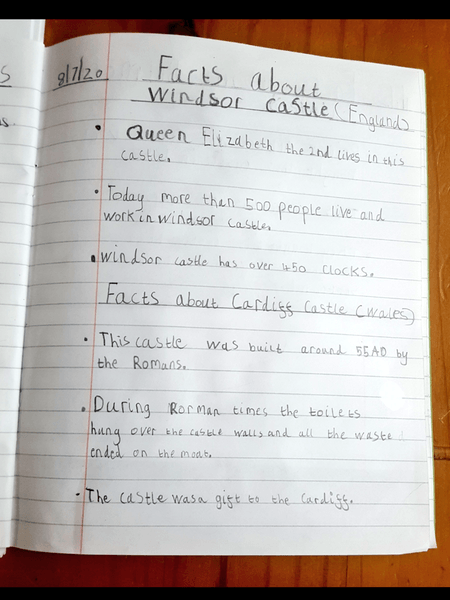 s
s.
8/7/20
Facts about
Windsor castle (England)
• Queen Elizabeth the 2nd lives in this
castle.
• Today more than 500 people live and
work in windsor castle.
• windsor castle has over 450 clocks.
Facts about Cardiff Castle (Wales)
• This castle was built around 55AD by
the Romans.
• During Rorman times the toilets
hung over the castle walls and all the waste
ended on the moat.
• The castle wasa gift to the Cardiff.